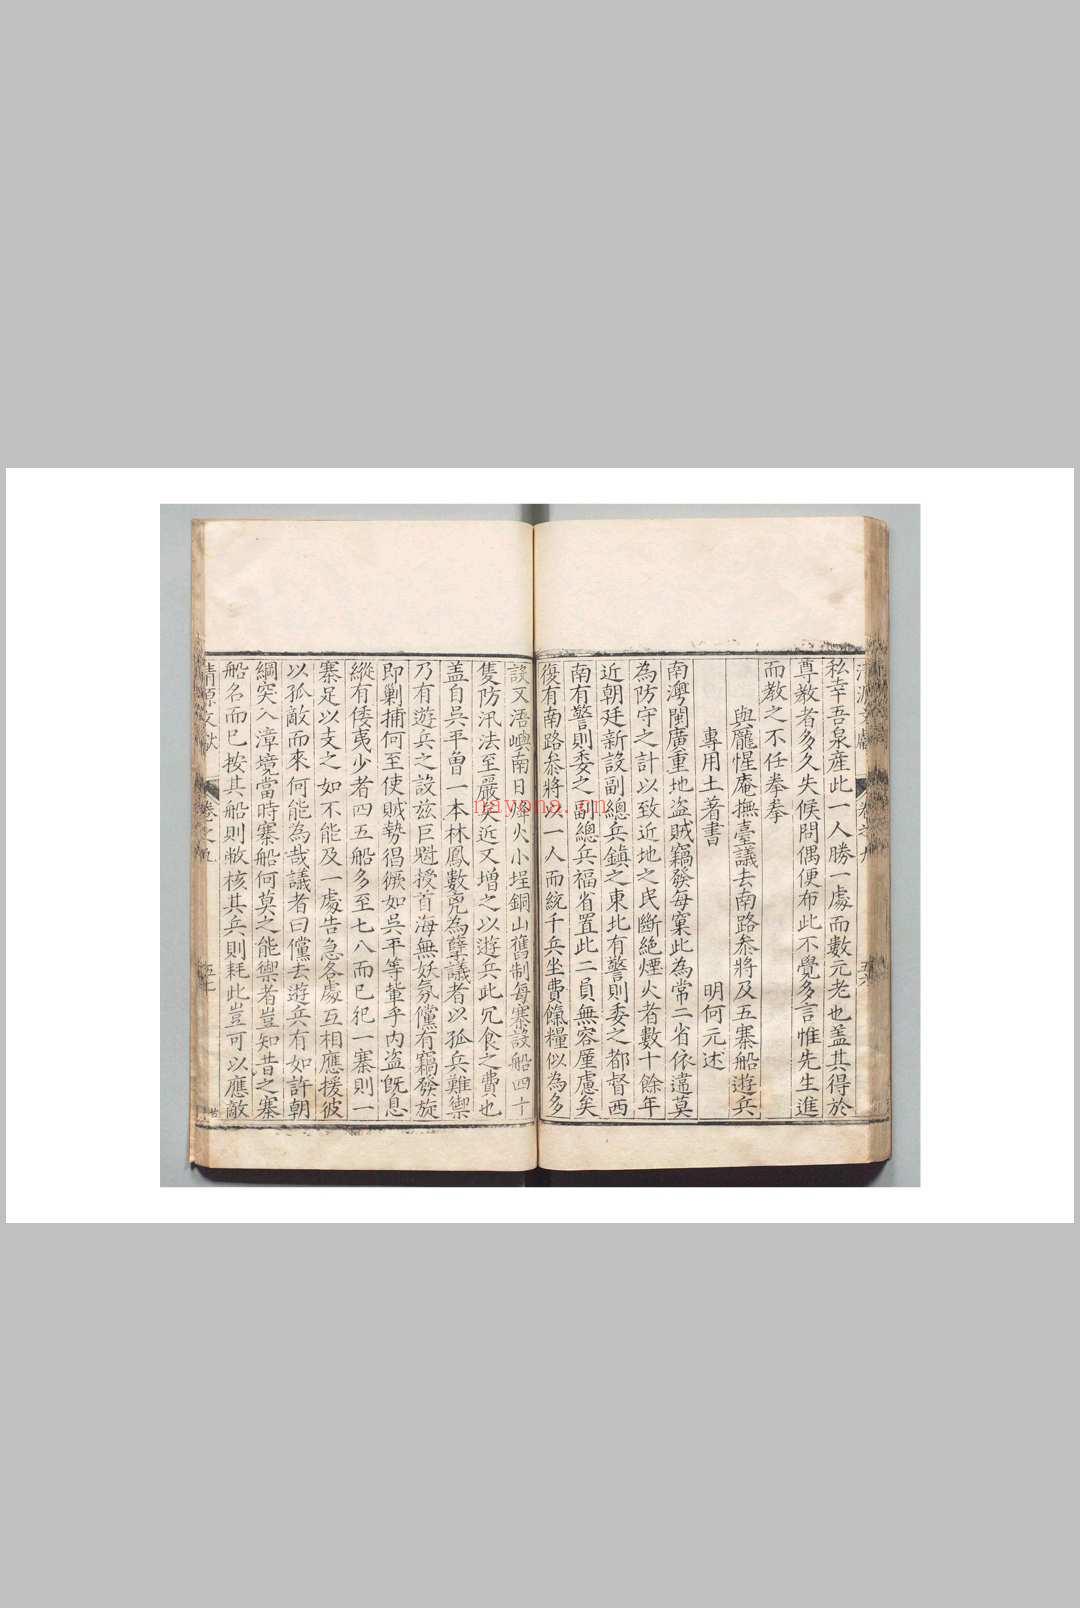 私幸吾泉産此一人勝一處而數元老也盖其得於
尊教者多久失候問偶便布此不覺多言惟先生進
而教之不任拳拳
與龐惺庵撫臺議去南路叅將及五寨船遊兵
專用土著書 明何元述
南澚閩廣重地盗賊竊發每窠此為常二省依違莫
為防守之計以致近地之民斷絶煙火者數十餘年
近朝廷新設副總兵鎮之東北有警則委之都督西
南有警則委之副總兵福省置此二員無容厪慮矣
復有南路叅將以一人而統千兵坐費餼糧似為多
設又浯嶼南日烽火小埕銅山舊制每寨設船四十
隻防汛法至嚴矣近又增之以遊兵此冗食之費也
盖自吳平曽一本林鳳數兇為孽議者以孤兵難禦
乃有遊兵之設兹巨憝授首海無妖氛儻有竊發旋
即剿捕何至使賊勢猖獗如吳平等輩乎内盗旣息
縱有倭夷少者四五船多至七八而已犯一寨則一
寨足以支之如不能及一處告急各處互相應援彼
以孤敵而來何能為哉議者曰儻去遊兵有如許朝
綱突入漳境當時寨船何莫之能禦者豈知昔之寨
船名而已按其船則敝核其兵則耗此豈可以應敵
清源文獻 卷之九
nayona.cn